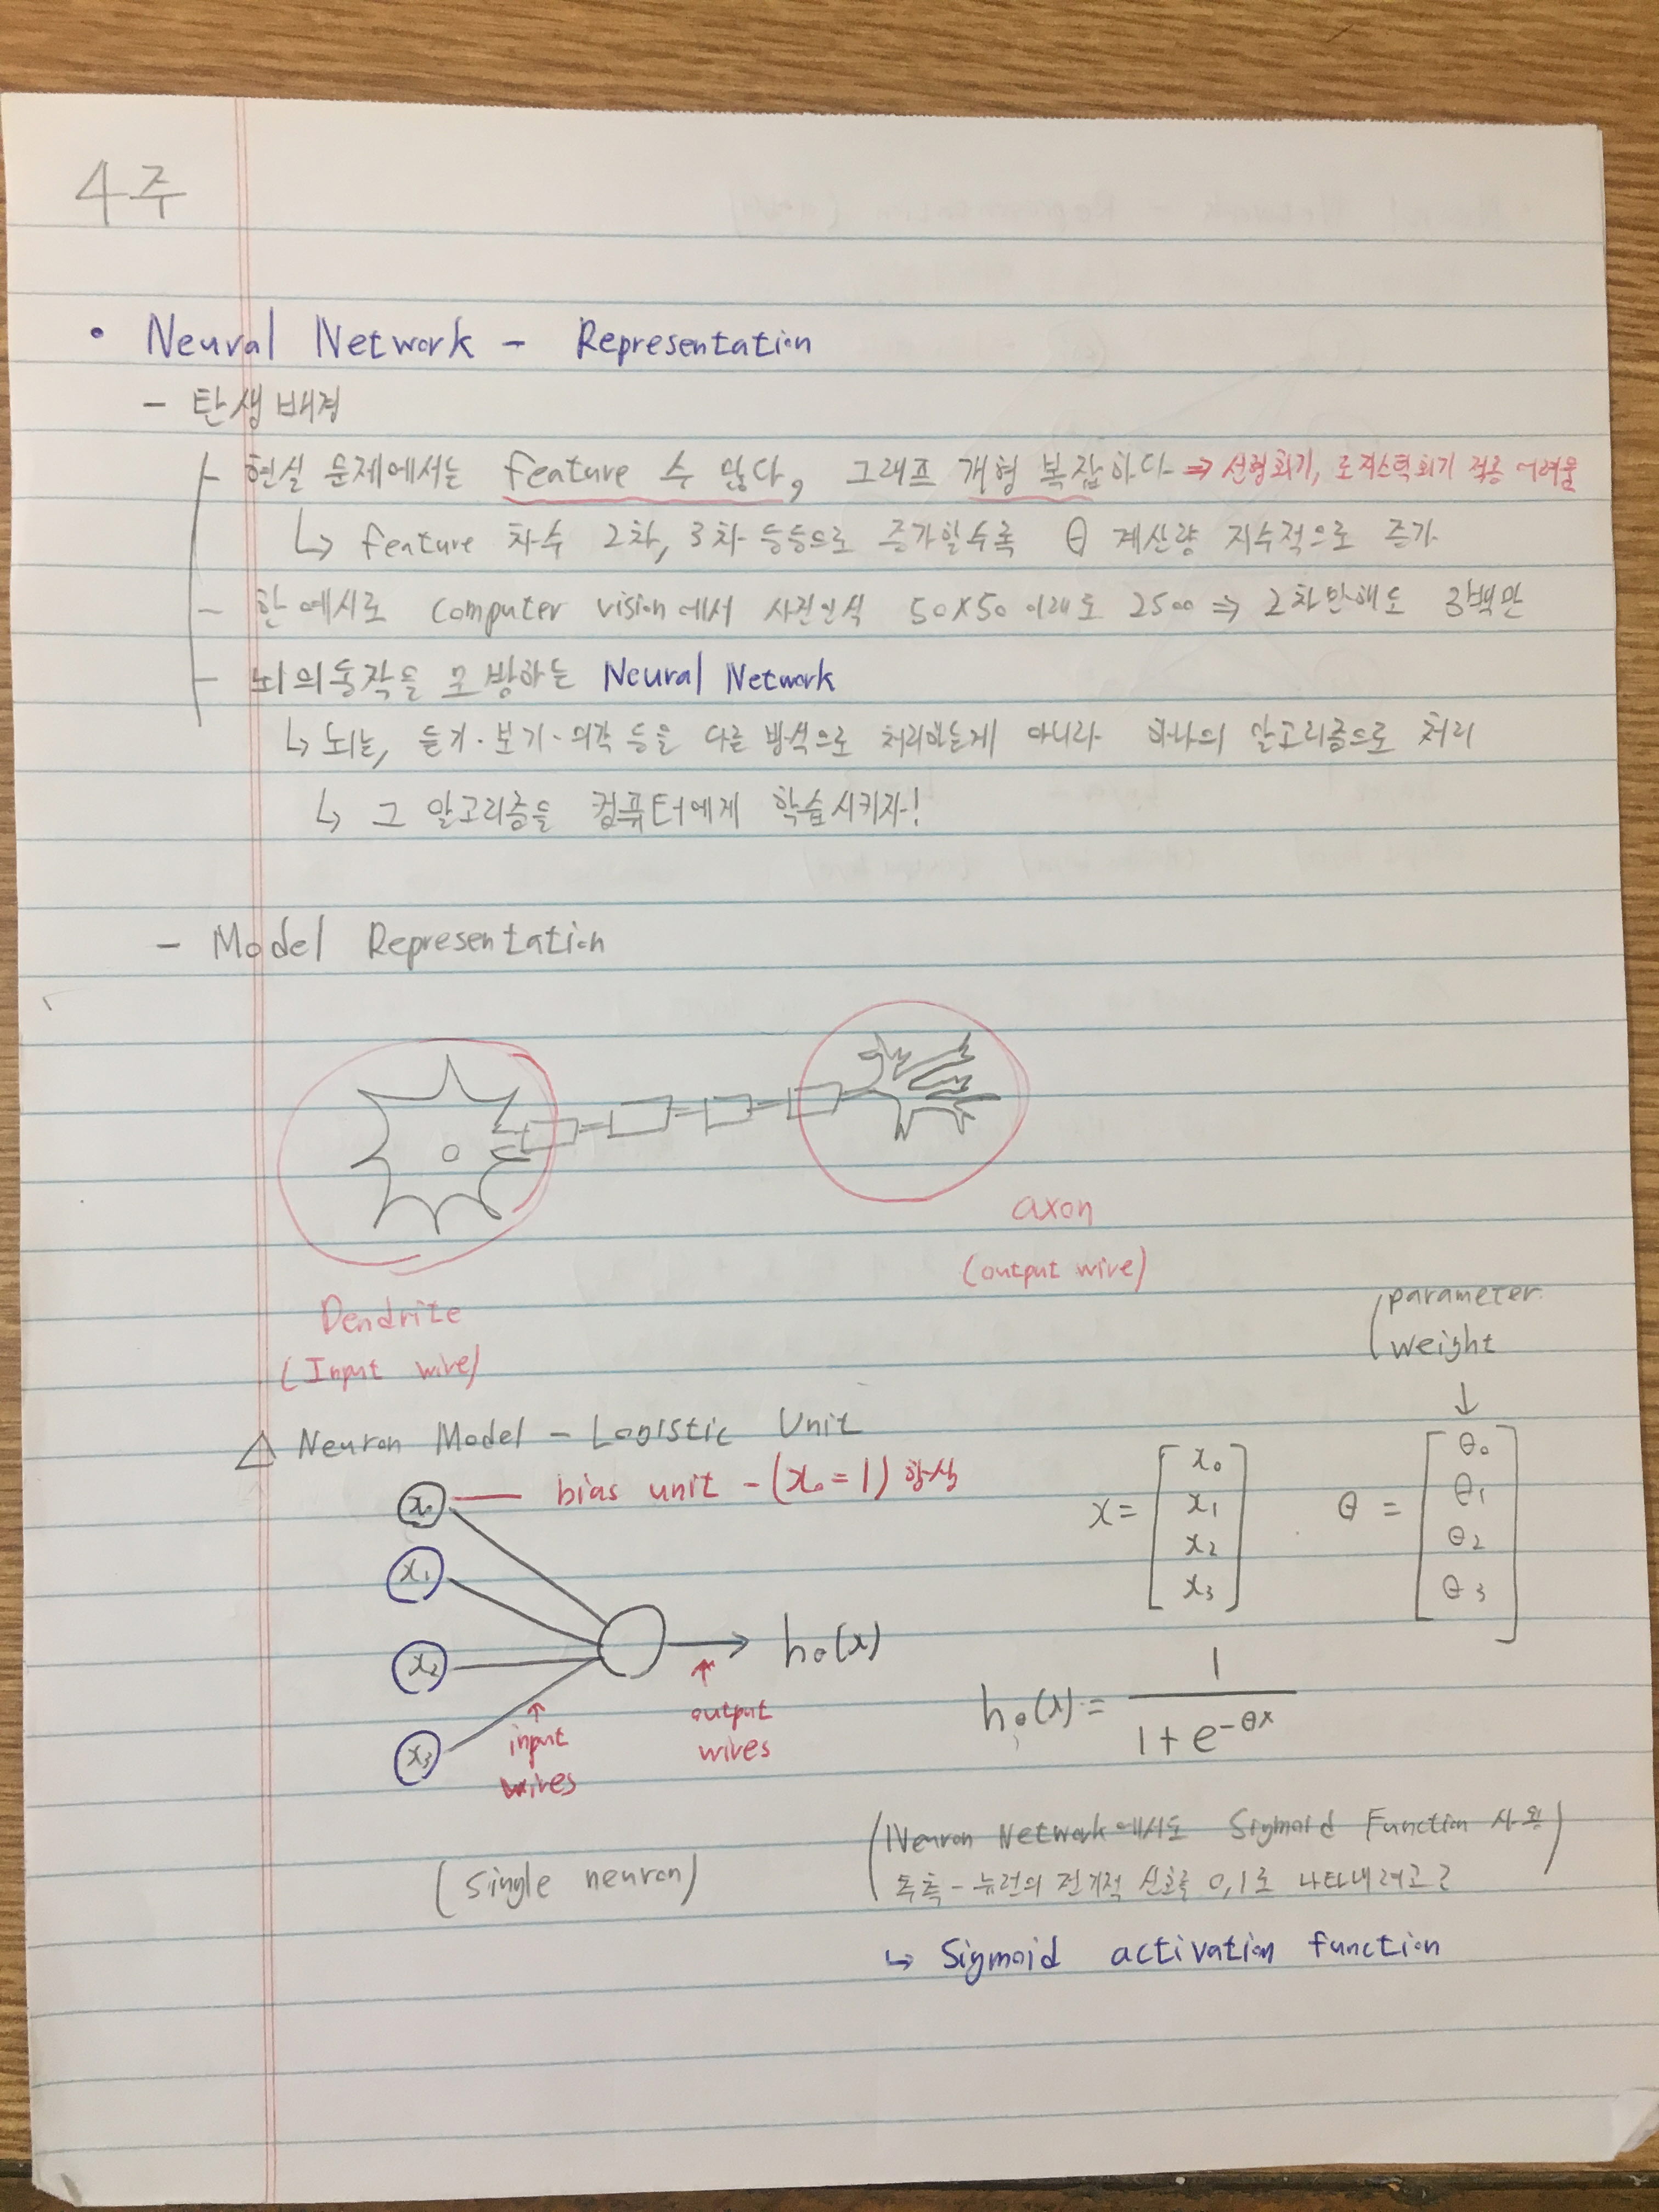 4주
• Neural Network - Representation
- 탄생배경
- 현실 문제에서는 feature 수 많다, 그래프 개형 복잡하다 ⇒ 선형회귀, 로지스틱회귀 적용 어려움
↳ feature 차수 2차, 3차 등등으로 증가할수록 θ 계산량 지수적으로 증가
- 한 예시로 computer vision에서 사진인식 50×50 이래도 2500 ⇒ 2차만해도 3백만
- 뇌의 동작을 모방하는 Neural Network
↳ 뇌는, 듣기·보기·의각 등을 다른 방식으로 처리하는게 아니라 하나의 알고리즘으로 처리
↳ 그 알고리즘을 컴퓨터에게 학습시키자!
- Model Representation
axon
(output wire)
Dendrite
(Input wire)
parameter
weight
↓
△ Neuron Model - Logistic Unit
x₀ — bias unit - (x₀ = 1) 항상
x₁
x₂
x₃
hθ(x)
input
wires
output
wires
x = [x₀ x₁ x₂ x₃]
θ = [θ₀ θ₁ θ₂ θ₃]
hθ(x) = 1 / (1 + e^-θx)
(single neuron)
(Neuron Network에서도 Sigmoid Function 사용
독측 - 뉴런의 전기적 신호를 0,1로 나타내려고)
↳ Sigmoid activation function